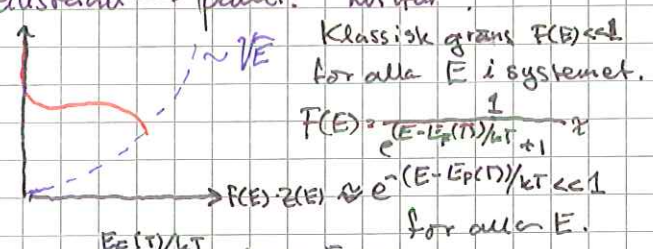 Klassisk gräns F(E)<<1
~ √E
för alla E i systemet.
F(E) = 1/(e^(E-E_F(T))/kT +1) ≈
F(E)·Z(E) ≈ e^-(E-E_F(T))/kT <<1
för alla E.
E_F(T)/kT